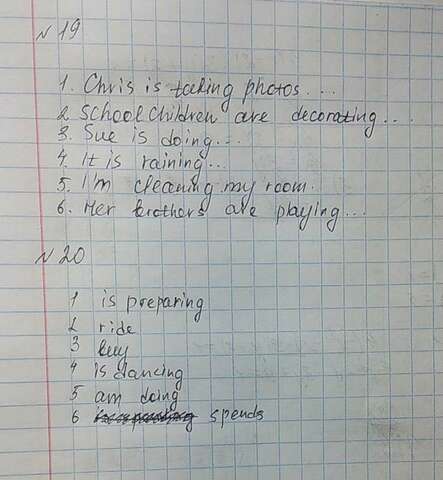 № 19
1. Chris is taking photos...
2. School children are decorating...
3. Sue is doing...
4. It is raining...
5. I'm cleaning my room.
6. Her brothers are playing...
№ 20
1 is preparing
2 ride
3 buy
4 is dancing
5 am doing
6 spends